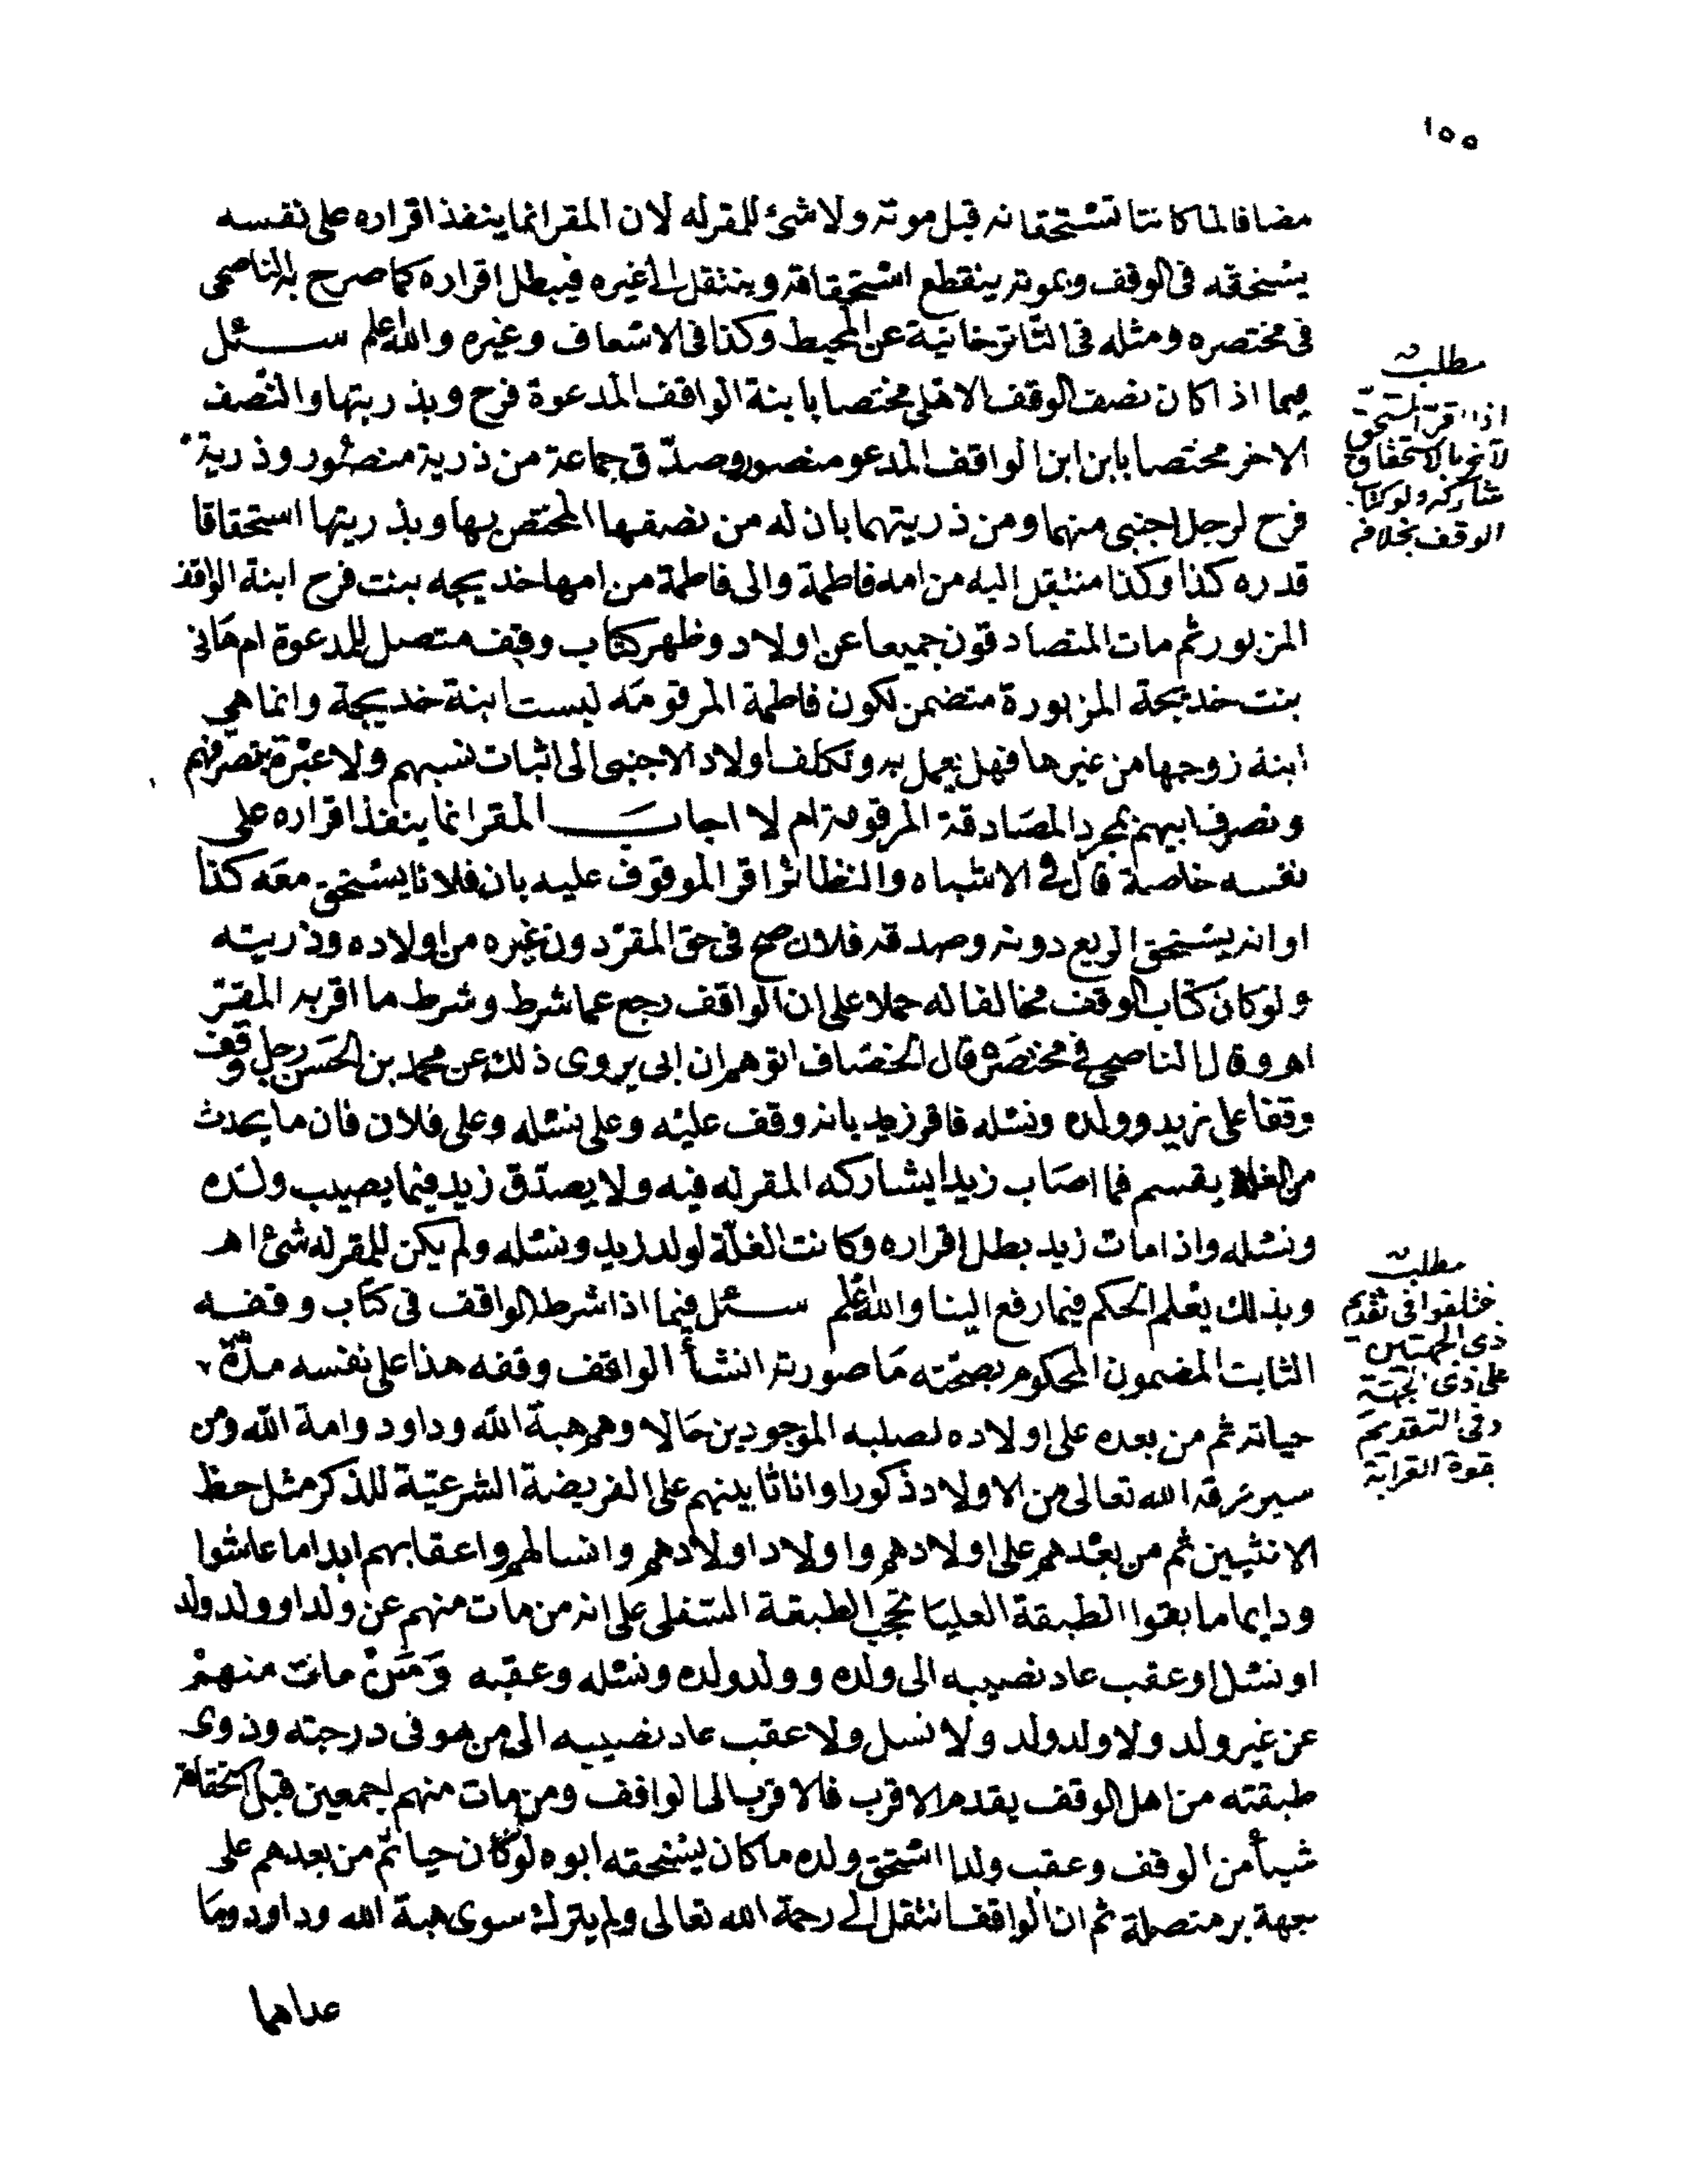 ١٥٥
مضافا لما كانتا تستحقانه قبل موته ولا شئ للمقر له لان المقر انما ينفذ اقراره على نفسه
يستحقه فى الوقف وبموته ينقطع استحقاقه وينتقل الى غيره فيبطل اقراره كما صرح به الناصحى
فى مختصره ومثله فى التاترخانية عن المحيط وكذا فى الاسعاف وغيره والله اعلم سئل
فيما اذا كان نصف الوقف الاهلى مختصا بابنة الواقف المدعوة فرح وبذريتها والنصف
الاخر مختصا بابن ابن الواقف المدعو منصور وصدّق جماعة من ذرية منصور وذرية
فرح لرجل اجنبى منهما ومن ذريتهما بان له من نصفها المختص بها وبذريتها استحقاقا
قدره كذا وكذا منتقل اليه من امه فاطمة والى فاطمة من امها خديجه بنت فرح ابنة الواقف
المزبور ثم مات المتصادقون جميعا عن اولاد وظهر كتاب وقف متصل للمدعوة ام هَانى
بنت خديجة المزبورة متضمن لكون فاطمة المرقومَه ليست ابنة خديجة وانما هى
ابنة زوجها من غيرها فهل يعمل به وتكلف اولاد الاجنبى الى اثبات نسبهم ولا عبْرة بتصرفهم
وتصرف ابيهم بمجرد المصَادقة المرقومة ام لا اجابَ المقر انما ينفذ اقراره على
نفسه خاصة قال فى الاشباه والنظائر اقر الموقوف عليه بان فلانا يستحق معَه كذا
او انه يستحق الريع دونه وصدقه فلان صح فى حق المقرّ دون غيره من اولاده وذريته
ولو كانَ كتاب الوقف مخالفا له حملا على ان الواقف رجع عما شرط وشرط ما اقر به المقرّ
اهـ وقال الناصحى فى مختصَره قال الخصَاف اتوهم ان ابى يروى ذلك عن محمد بن الحَسَن رجل وقف
وقفا على زيد وولده ونسْله فاقر زيد بانه وقف عليْه وعلى نسْله وعلى فلان فان ما يحدث
من الغلة يقسم فما اصَاب زيدا يشاركه المقر له فيه ولا يصدّق زيد فيما يصيب ولده
ونسْله واذا مات زيد بطل اقراره وكانت الغلّة لولد زيد ونسْله ولم يكن للمقر له شئ اهـ
وبذلك يعْلم الحكم فيما رفع الينا والله اعلم سئل فيما اذا شرط الواقف فى كتَاب وقفه
الثابت المضمون المحكوم بصحّته مَا صورته انشأ الواقف وقفه هذا على نفسه مدّة
حياته ثم من بعده على اولاده لصلبه الموجودين حَالا وهم هبة الله وداود وامة الله ومن
سيرزقه الله تعالى من الاولاد ذكورا واناثا بينهم على الفريضة الشرعيّة للذكر مثل حظ
الانثيين ثم من بعْدهم على اولادهم واولاد اولادهم وانسالهم واعقابهم ابدا ما عاشوا
ودايما ما بقوا الطبقة العليَا تحجب الطبقة السّفلى على انه من مات منهم عن ولد او ولد ولد
او نسْل او عقب عاد نصيبه الى ولده وولد ولده ونسْله وعقبه وَمَنْ مات منهمْ
عن غير ولد ولا ولد ولد ولا نسل ولا عقب عاد نصيبه الى من هو فى درجته وذوى
طبقته من اهل الوقف يقدم الاقرب فالاقرب الى الواقف ومن مات منهم اجمعين قبل استحقاقه
شيأ من الوقف وعقب ولدا اسْتحق ولده ما كان يسْتحقه ابوه لو كان حيا ثم من بعدهم على
جهة بر متصلة ثم ان الواقف انتقل الى رحمة الله تعالى ولم يترك سوى هبة الله وداود ومَا
عداهما
مطلب
اذا اقرّ المستحق
لآخر بالاستحقاق
شاركه ولو كتاب
الوقف بخلافه
مطلب
ختلفوا فى تقديم
ذى الجهتين
على ذى الجهة
وفى التقديم
بقوة القرابة